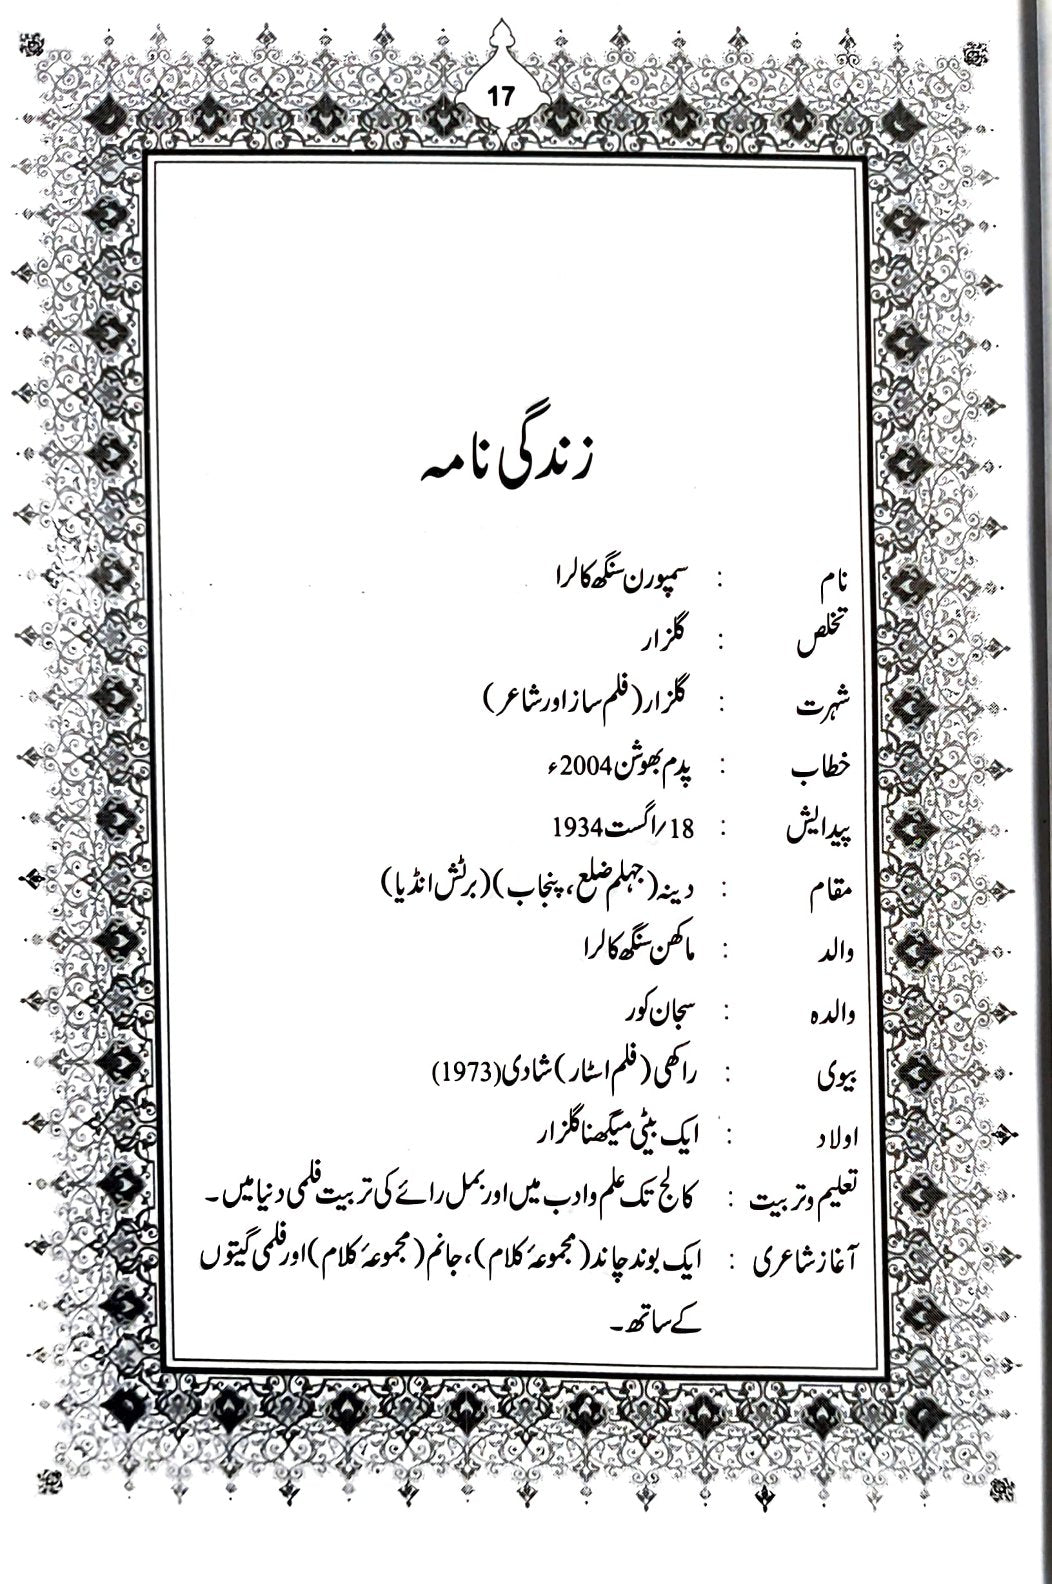 17
زندگی نامہ
نام : سمپورن سنگھ کالرا
تخلص : گلزار
شہرت : گلزار (فلم ساز اور شاعر)
خطاب : پدم بھوشن 2004ء
پیدایش : 18/اگست 1934
مقام : دینہ (جہلم ضلع، پنجاب) (برٹش انڈیا)
والد : ماکھن سنگھ کالرا
والدہ : سجان کور
بیوی : راکھی (فلم اسٹار) شادی (1973)
اولاد : ایک بیٹی میگھنا گلزار
تعلیم و تربیت : کالج تک علم و ادب میں اور بمل رائے کی تربیت فلمی دنیا میں۔
آغاز شاعری : ایک بوند چاند (مجموعۂ کلام)، جانم (مجموعۂ کلام) اور فلمی گیتوں
کے ساتھ۔